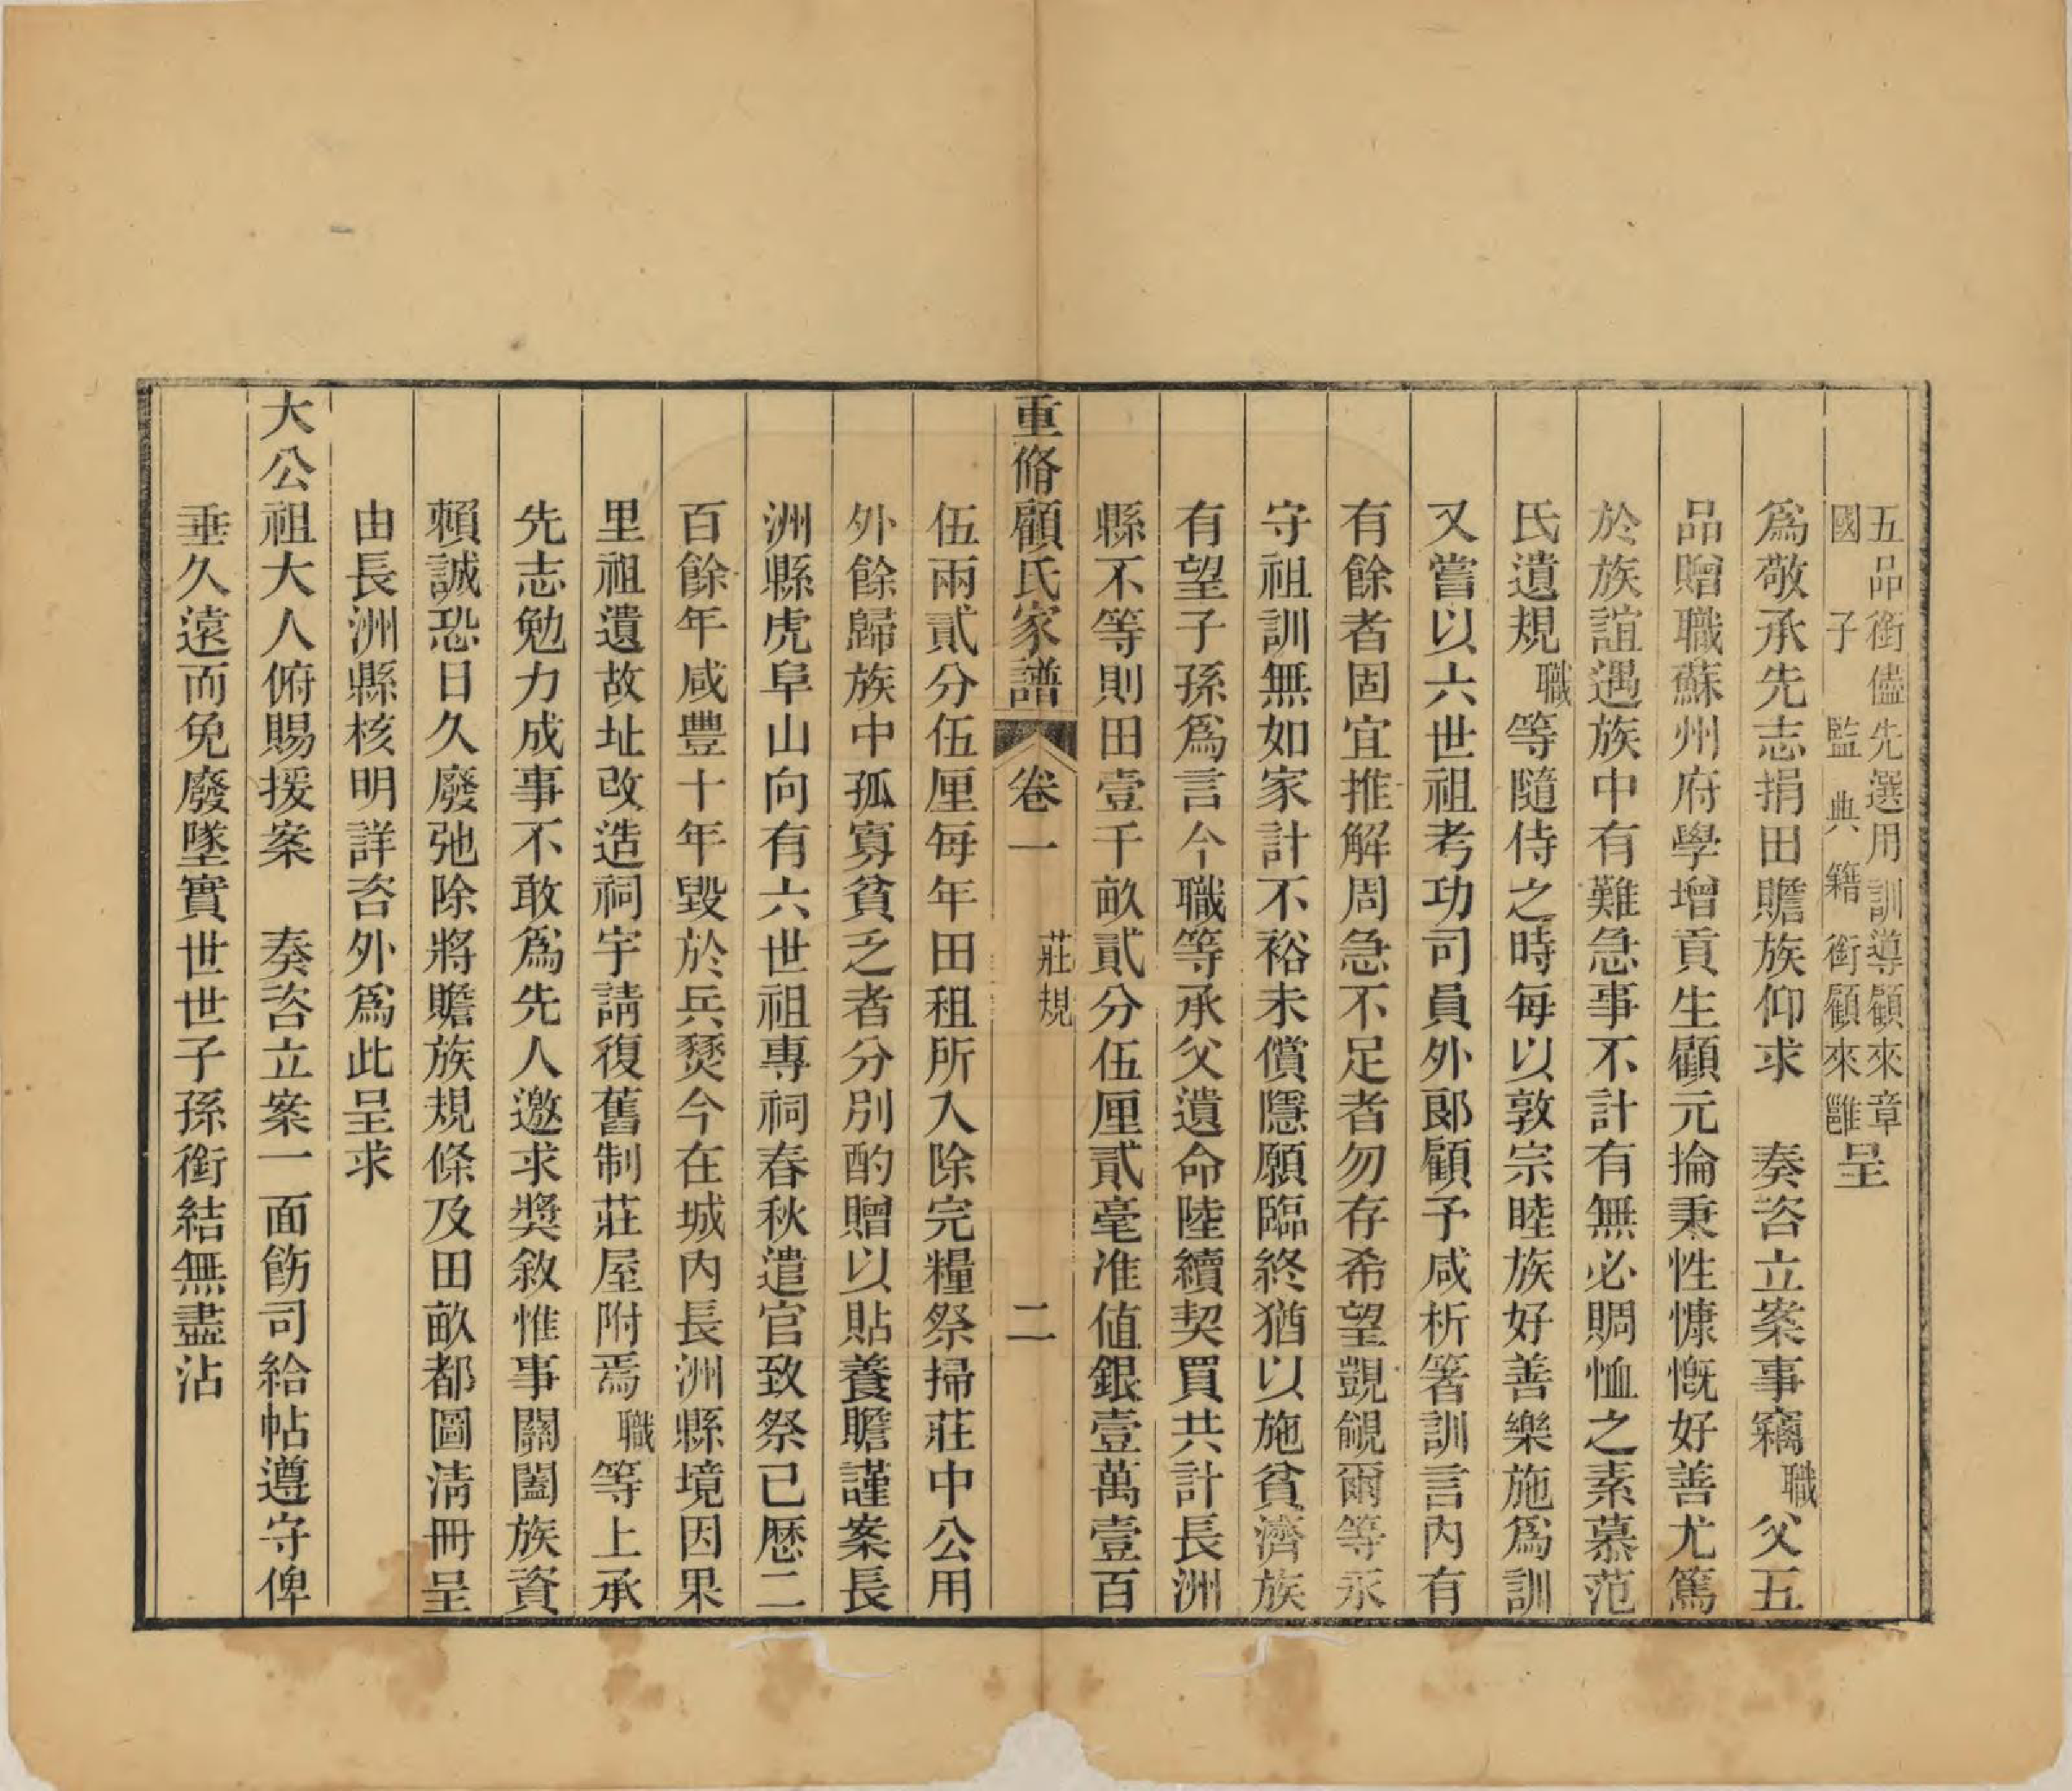 五品銜儘先選用訓導顧來章
國子監典籍銜顧來雝
呈
爲敬承先志捐田贍族仰求　奏咨立案事竊職父五
品贈職蘇州府學增貢生顧元掄秉性慷慨好善尤篤
於族誼遇族中有難急事不計有無必賙恤之素慕范
氏遺規職等隨侍之時每以敦宗睦族好善樂施爲訓
又嘗以六世祖考功司員外郞顧予咸析箸訓言內有
有餘者固宜推解周急不足者勿存希望覬覦爾等永
守祖訓無如家計不裕未償隱願臨終猶以施貧濟族
有望子孫爲言今職等承父遺命陸續契買共計長洲
縣不等則田壹千畝貳分伍厘貳毫准値銀壹萬壹百
重脩顧氏家譜　卷一　莊規　二
伍兩貳分伍厘每年田租所入除完糧祭掃莊中公用
外餘歸族中孤寡貧乏者分別酌贈以貼養贍謹案長
洲縣虎阜山向有六世祖專祠春秋遣官致祭已歷二
百餘年咸豐十年毀於兵燹今在城內長洲縣境因果
里祖遺故址改造祠宇請復舊制莊屋附焉職等上承
先志勉力成事不敢爲先人邀求獎敘惟事關闔族資
賴誠恐日久廢弛除將贍族規條及田畝都圖淸冊呈
由長洲縣核明詳咨外爲此呈求
大公祖大人俯賜援案　奏咨立案一面飭司給帖遵守俾
垂久遠而免廢墜實世世子孫銜結無盡沾